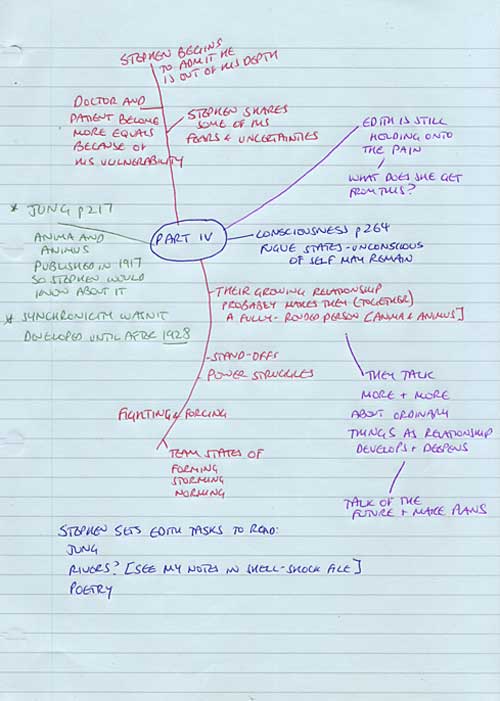 STEPHEN BEGINS
TO ADMIT HE
IS OUT OF HIS DEPTH
DOCTOR AND
PATIENT BECOME
MORE EQUALS
BECAUSE OF
HIS VULNERABILITY
STEPHEN SHARES
SOME OF HIS
FEARS & UNCERTAINTIES
EDITH IS STILL
HOLDING ONTO
THE PAIN
WHAT DOES SHE GET
FROM THIS?
* JUNG p217
ANIMA AND
ANIMUS
PUBLISHED IN 1917
SO STEPHEN WOULD
KNOW ABOUT IT
* SYNCHRONICITY WASN'T
DEVELOPED UNTIL AFTER 1928
PART IV
CONSCIOUSNESS p264
FUGUE STATES - UNCONSCIOUS
OF SELF MAY REMAIN
THEIR GROWING RELATIONSHIP
PROBABLY MAKES THEM (TOGETHER)
A FULLY-RONDED PERSON [ANIMA & ANIMUS]
STAND-OFFS
POWER STRUGGLES
FIGHTING & FORCING
TEAM STATES OF
FORMING
STORMING
NORMING
THEY TALK
MORE + MORE
ABOUT ORDINARY
THINGS AS RELATIONSHIP
DEVELOPS + DEEPENS
TALK OF THE
FUTURE + MAKE PLANS
STEPHEN SETS EDITH TASKS TO READ:
JUNG
RIVERS? [SEE MY NOTES IN SHELL-SHOCK FILE]
POETRY